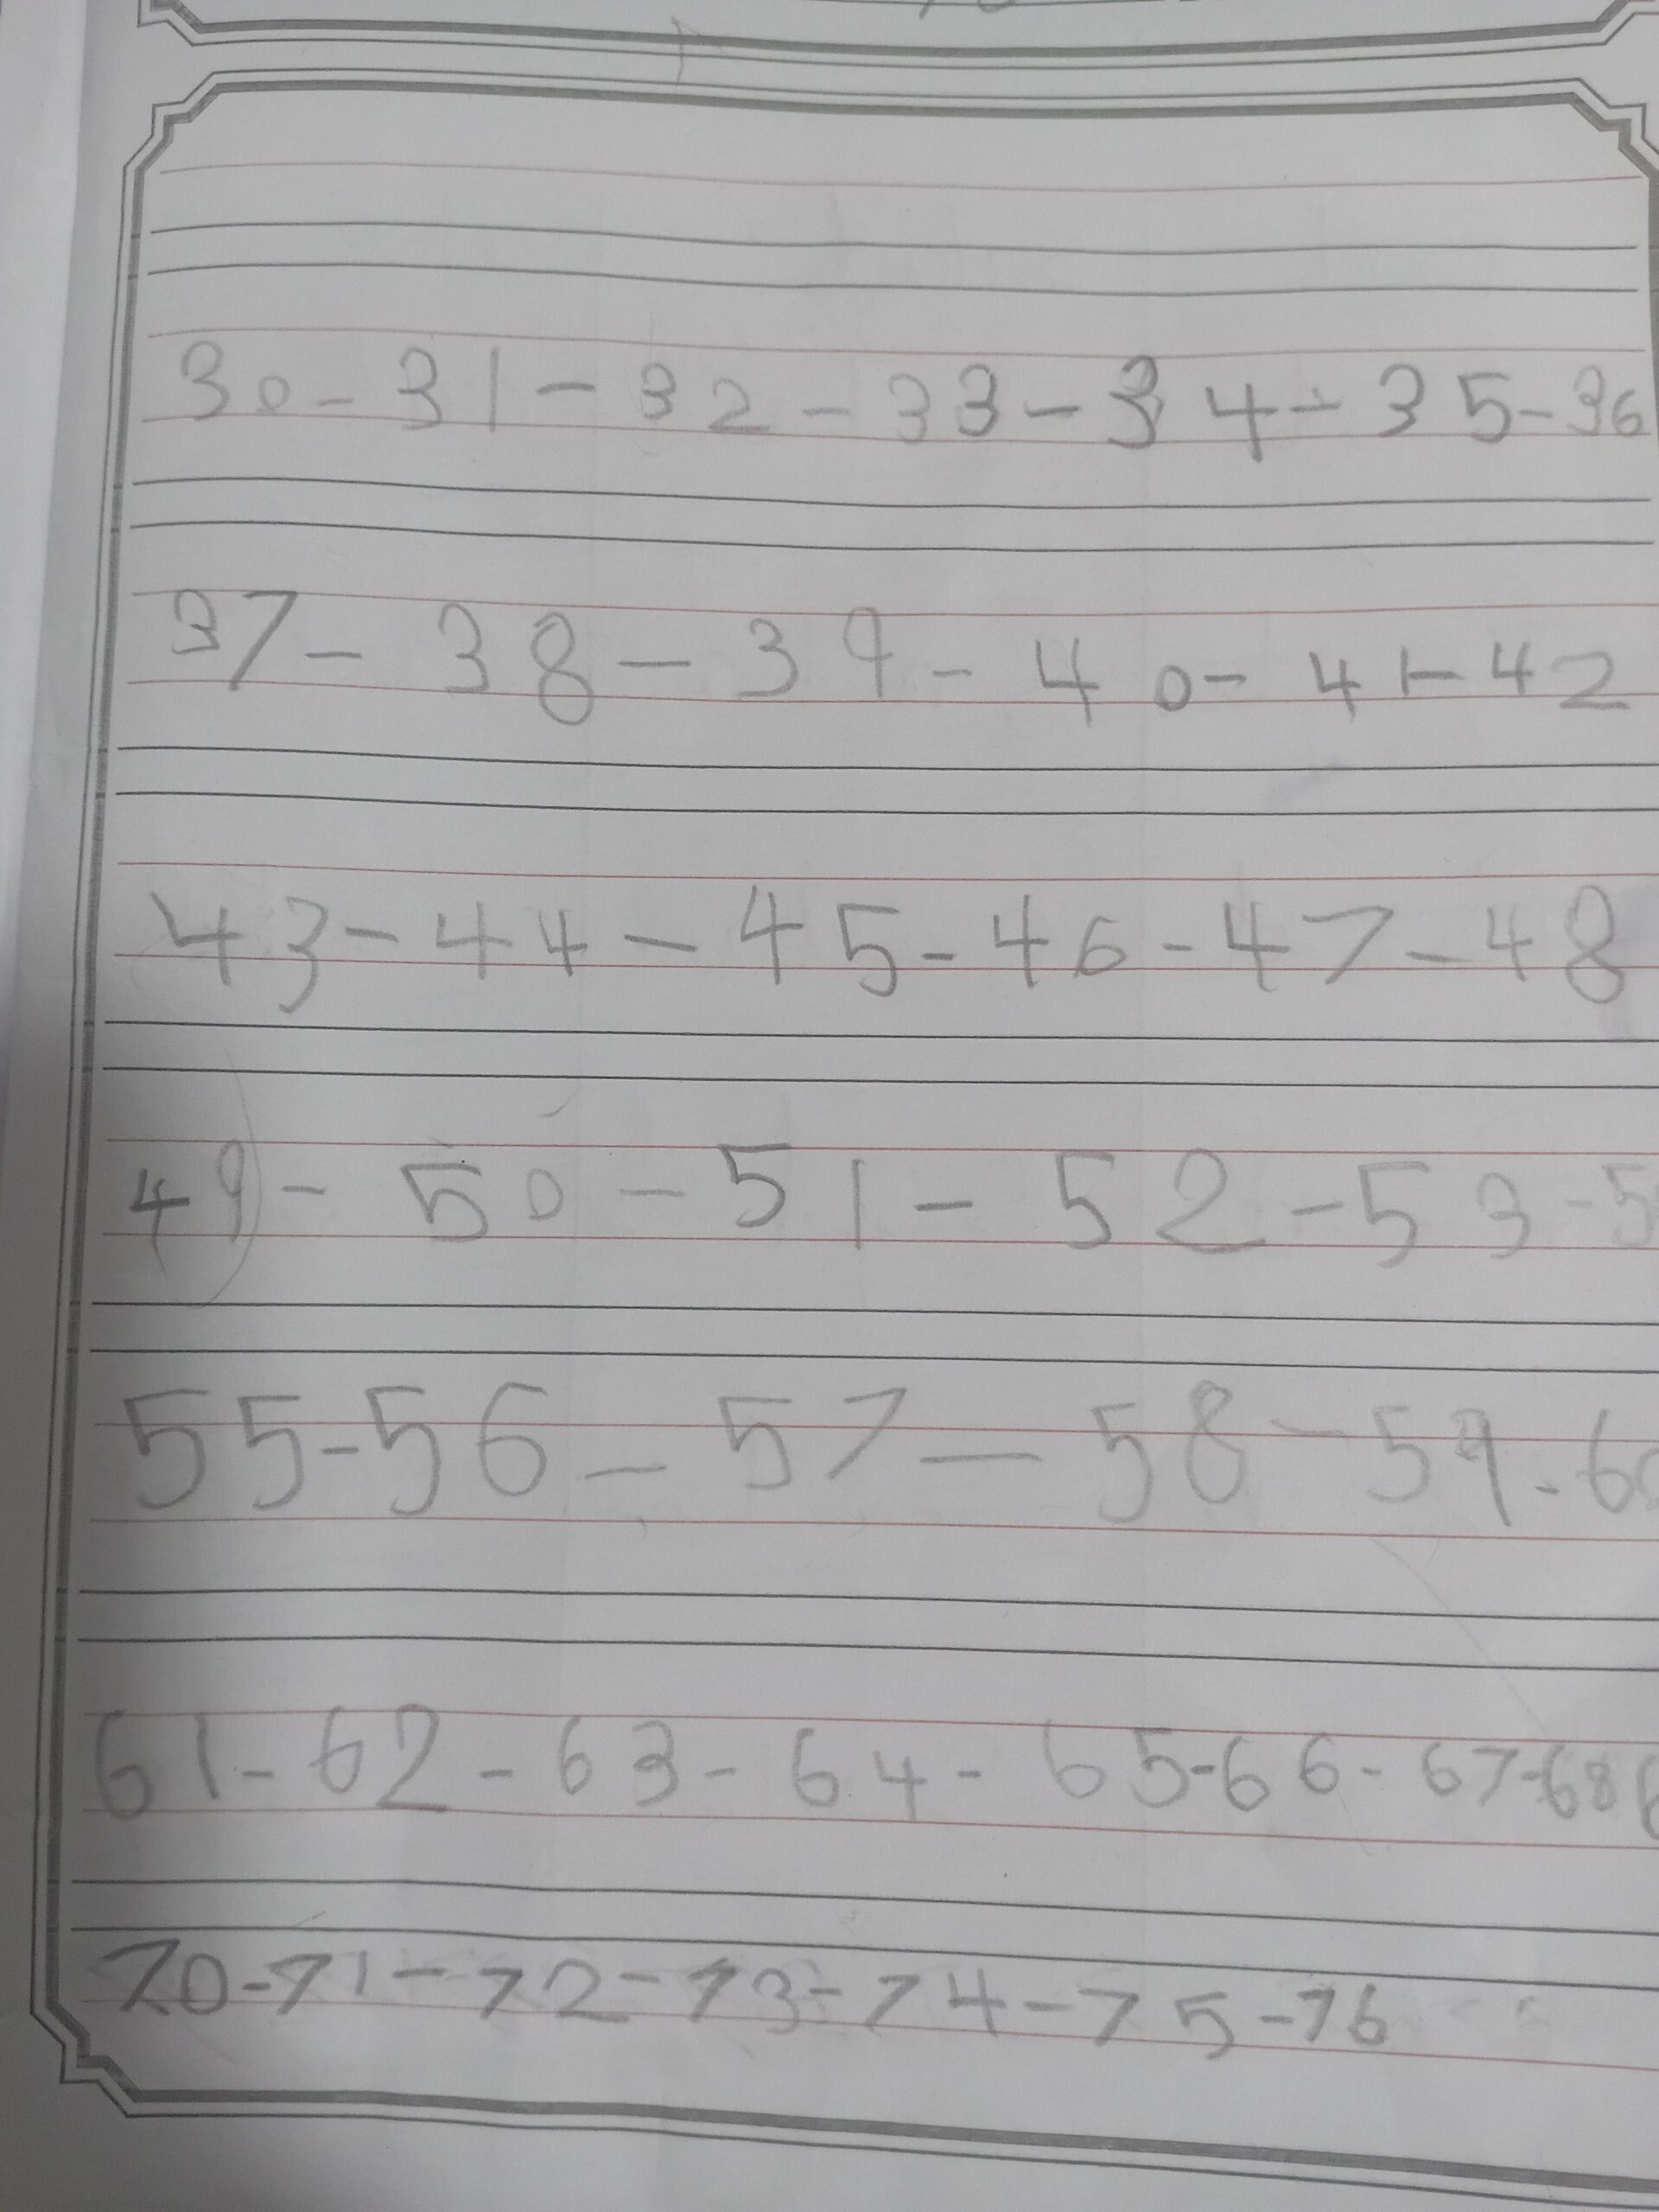 30-31-32-33-34-35-36
37-38-39-40-41-42
43-44-45-46-47-48
49-50-51-52-53-5
55-56-57-58-59-60
61-62-63-64-65-66-67-68
70-71-72-73-74-75-76